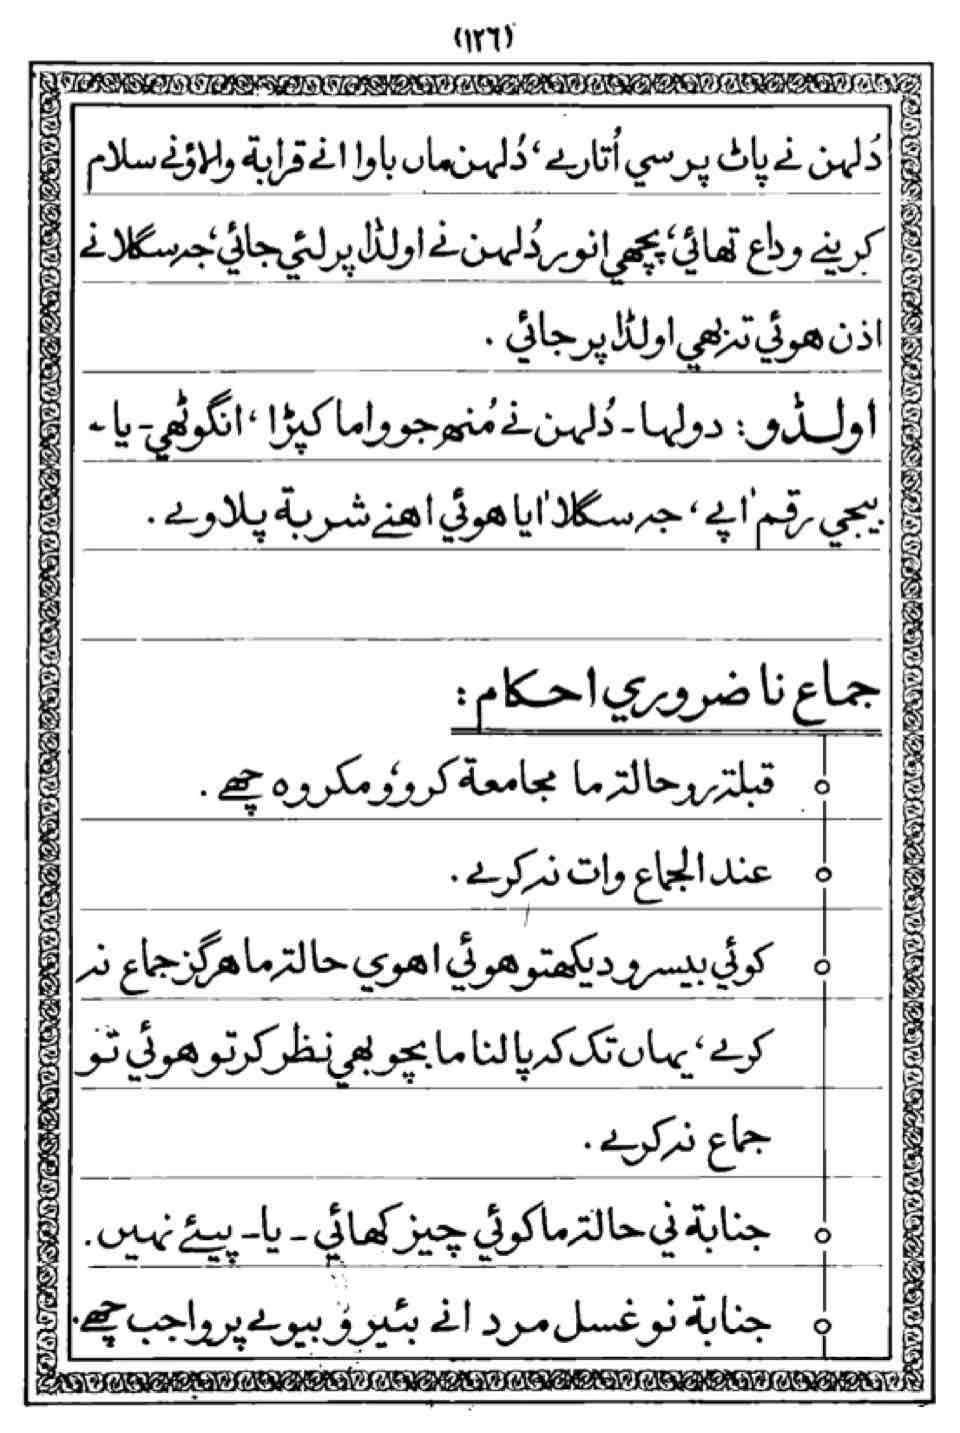 (١٢٦)
دُلهن نے پاٹ پر سي اُتارے، دُلهن ماں باوا انے قرابة والاؤنے سلام
كرينے وداع تھائي، پچھي انور دُلهن نے اولڈا پر لئي جائي، جہ سگلا نے
اذن هوئي تہ بھي اولڈا پر جائي .
اولڈو: دولها - دُلهن نے مُنھ جووا ما كپڑا ، انگوٹھي - يا -
بيجي رقم اٰپے، جہ سگلا اٰيا هوئي اهنے شربة پلاوے .
جماع نا ضروري احكام :
قبلة رو حالة ما مجامعة كرؤو مكروه چھے .
عند الجماع وات نہ كرے .
كوئي بيسرو ديكھتو هوئي اهوي حالة ما هرگز جماع نہ
كرے، يهاں تك كہ پالنا ما بچو بھي نظر كرتو هوئي تو
جماع نہ كرے .
جنابة ني حالة ما كوئي چيز كھائي - يا - پيئے نهيں .
جنابة نو غسل مرد انے بئيرو بيوے پر واجب چھے .